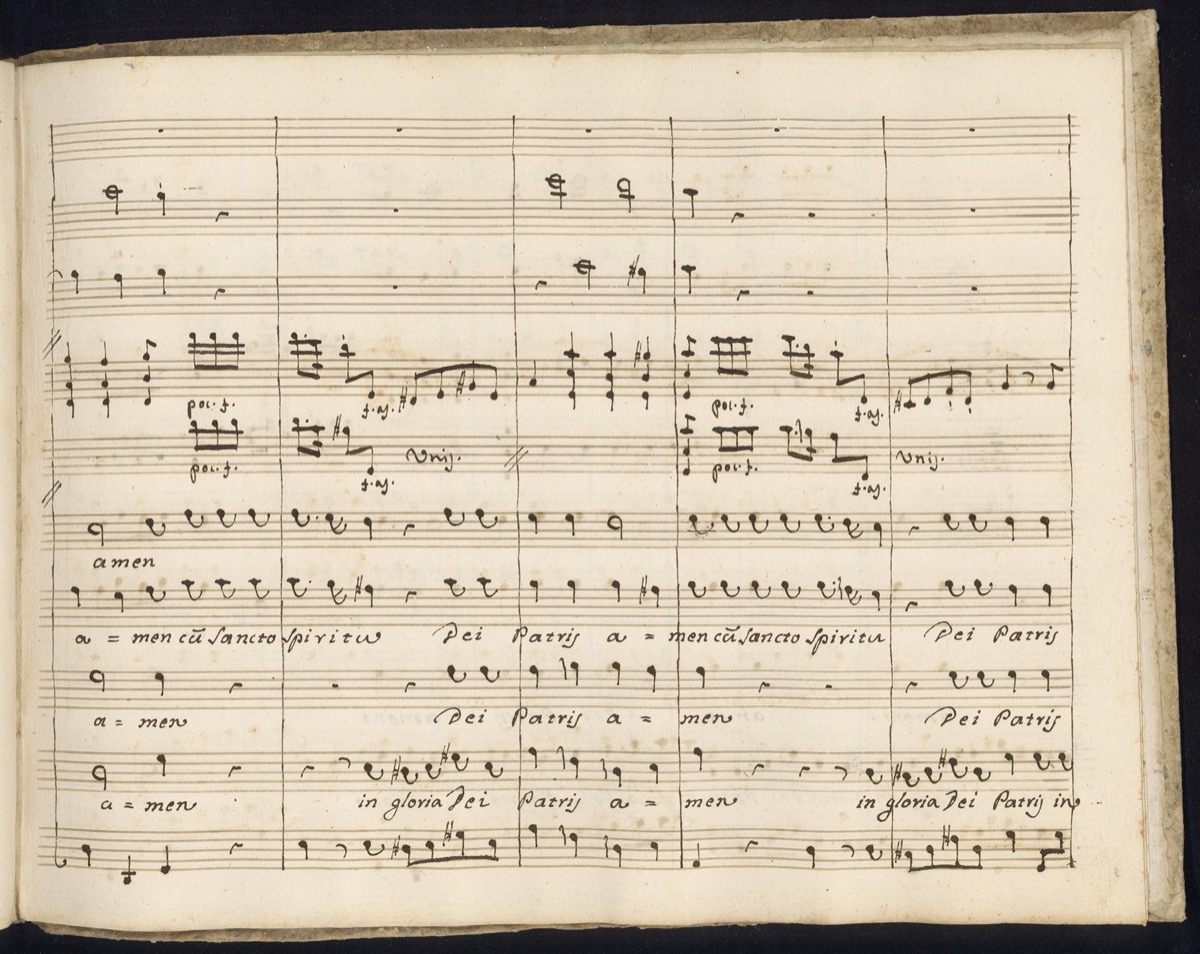 poc. f. poc. f.
f. aj. f. aj.
poc. f. Unij. poc. f. Unij.
f. aj. f. aj.
amen
a = men cũ Sancto Spiritu Dei Patris a = men cũ Sancto Spiritu Dei Patris
a = men Dei Patris a = men Dei Patris
a = men in gloria Dei Patris a = men in gloria Dei Patris in